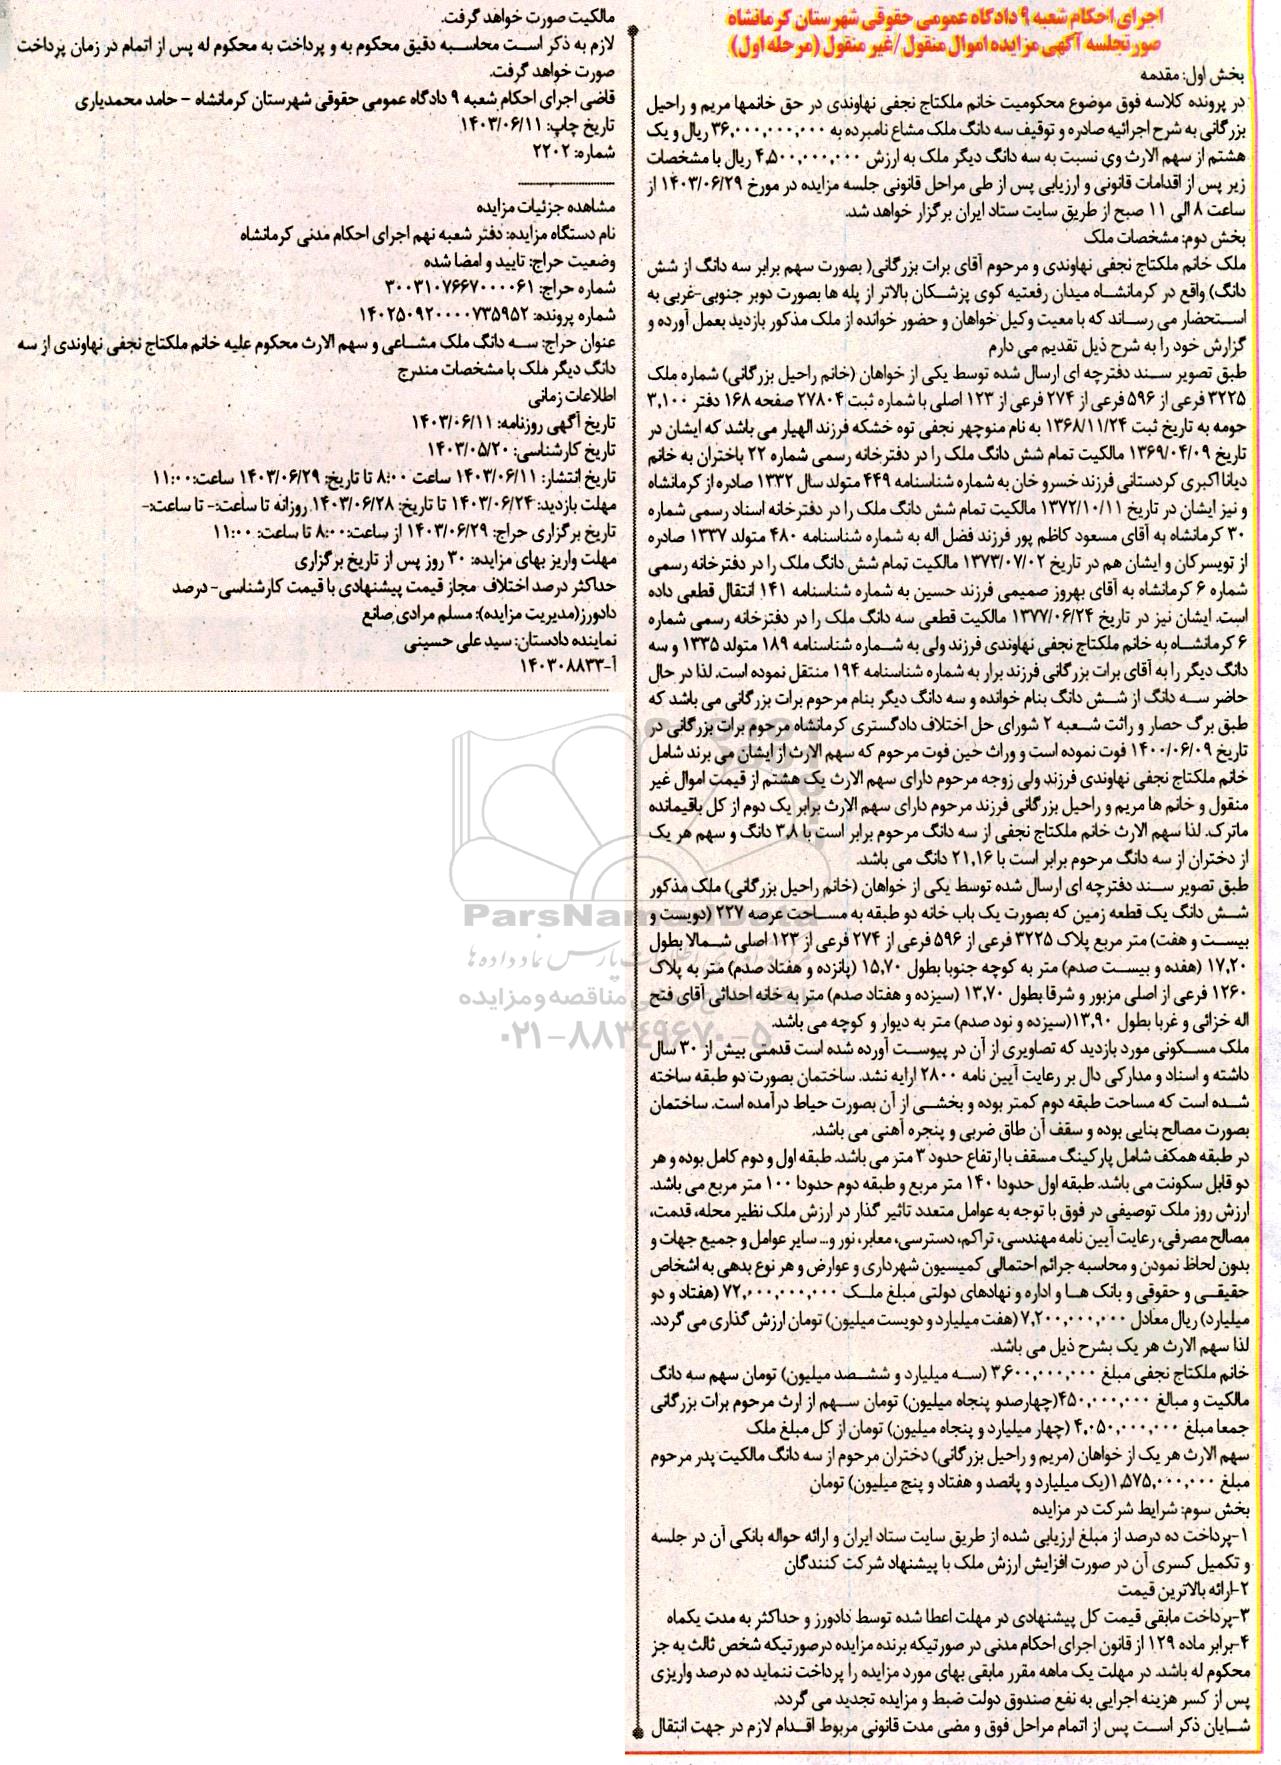 اجرای احکام شعبه ۹ دادگاه عمومی حقوقی شهرستان کرمانشاه
صورتجلسه آگهی مزایده اموال منقول/غیر منقول (مرحله اول)
بخش اول: مقدمه
در پرونده کلاسه فوق موضوع محکومیت خانم ملکتاج نجفی نهاوندی در حق خانمها مریم و راحیل
بزرگانی به شرح اجرائیه صادره و توقیف سه دانگ ملک مشاع نامبرده به ۳۶,۰۰۰,۰۰۰,۰۰۰ ریال و یک
هشتم از سهم الارث وی نسبت به سه دانگ دیگر ملک به ارزش ۴,۵۰۰,۰۰۰,۰۰۰ ریال با مشخصات
زیر پس از اقدامات قانونی و ارزیابی پس از طی مراحل قانونی جلسه مزایده در مورخ ۱۴۰۳/۰۶/۲۹ از
ساعت ۸ الی ۱۱ صبح از طریق سایت ستاد ایران برگزار خواهد شد.
بخش دوم: مشخصات ملک
ملک خانم ملکتاج نجفی نهاوندی و مرحوم آقای برات بزرگانی( بصورت سهم برابر سه دانگ از شش
دانگ) واقع در کرمانشاه میدان رفعتیه کوی پزشکان بالاتر از پله ها بصورت دوبر جنوبی-غربی به
استحضار می رساند که با معیت وکیل خواهان و حضور خوانده از ملک مذکور بازدید بعمل آورده و
گزارش خود را به شرح ذیل تقدیم می دارم
طبق تصویر سند دفترچه ای ارسال شده توسط یکی از خواهان (خانم راحیل بزرگانی) شماره ملک
۳۲۲۵ فرعی از ۵۹۶ فرعی از ۲۷۴ فرعی از ۱۲۳ اصلی با شماره ثبت ۲۷۸۰۴ صفحه ۱۶۸ دفتر ۳,۱۰۰
حومه به تاریخ ثبت ۱۳۶۸/۱۱/۲۴ به نام منوچهر نجفی توه خشکه فرزند الهیار می باشد که ایشان در
تاریخ ۱۳۶۹/۰۴/۰۹ مالکیت تمام شش دانگ ملک را در دفترخانه رسمی شماره ۲۲ باختران به خانم
دیانا اکبری کردستانی فرزند خسرو خان به شماره شناسنامه ۴۴۹ متولد سال ۱۳۳۲ صادره از کرمانشاه
و نیز ایشان در تاریخ ۱۳۷۲/۱۰/۱۱ مالکیت تمام شش دانگ ملک را در دفترخانه اسناد رسمی شماره
۳۰ کرمانشاه به آقای مسعود کاظم پور فرزند فضل اله به شماره شناسنامه ۴۸۰ متولد ۱۳۳۷ صادره
از تویسرکان و ایشان هم در تاریخ ۱۳۷۳/۰۷/۰۲ مالکیت تمام شش دانگ ملک را در دفترخانه رسمی
شماره ۶ کرمانشاه به آقای بهروز صمیمی فرزند حسین به شماره شناسنامه ۱۴۱ انتقال قطعی داده
است. ایشان نیز در تاریخ ۱۳۷۷/۰۶/۲۴ مالکیت قطعی سه دانگ ملک را در دفترخانه رسمی شماره
۶ کرمانشاه به خانم ملکتاج نجفی نهاوندی فرزند ولی به شماره شناسنامه ۱۸۹ متولد ۱۳۳۵ و سه
دانگ دیگر را به آقای برات بزرگانی فرزند برار به شماره شناسنامه ۱۹۴ منتقل نموده است. لذا در حال
حاضر سه دانگ از شش دانگ بنام خوانده و سه دانگ دیگر بنام مرحوم برات بزرگانی می باشد که
طبق برگ حصار و راثت شعبه ۲ شورای حل اختلاف دادگستری کرمانشاه مرحوم برات بزرگانی در
تاریخ ۱۴۰۰/۰۶/۰۹ فوت نموده است و وراث حین فوت مرحوم که سهم الارث از ایشان می برند شامل
خانم ملکتاج نجفی نهاوندی فرزند ولی زوجه مرحوم دارای سهم الارث یک هشتم از قیمت اموال غیر
منقول و خانم ها مریم و راحیل بزرگانی فرزند مرحوم دارای سهم الارث برابر یک دوم از کل باقیمانده
ماترک. لذا سهم الارث خانم ملکتاج نجفی از سه دانگ مرحوم برابر است با ۳٫۸ دانگ و سهم هر یک
از دختران از سه دانگ مرحوم برابر است با ۲۱٫۱۶ دانگ می باشد.
طبق تصویر سند دفترچه ای ارسال شده توسط یکی از خواهان (خانم راحیل بزرگانی) ملک مذکور
شش دانگ یک قطعه زمین که بصورت یک باب خانه دو طبقه به مساحت عرصه ۲۲۷ (دویست و
بیست و هفت) متر مربع پلاک ۳۲۲۵ فرعی از ۵۹۶ فرعی از ۲۷۴ فرعی از ۱۲۳ اصلی شمالا بطول
۱۷٫۲۰ (هفده و بیست صدم) متر به کوچه جنوبا بطول ۱۵٫۷۰ (پانزده و هفتاد صدم) متر به پلاک
۱۲۶۰ فرعی از اصلی مزبور و شرقا بطول ۱۳٫۷۰ (سیزده و هفتاد صدم) متر به خانه احداثی آقای فتح
اله خزائی و غربا بطول ۱۳٫۹۰(سیزده و نود صدم) متر به دیوار و کوچه می باشد.
ملک مسکونی مورد بازدید که تصاویری از آن در پیوست آورده شده است قدمتی بیش از ۳۰ سال
داشته و اسناد و مدارکی دال بر رعایت آیین نامه ۲۸۰۰ ارایه نشد. ساختمان بصورت دو طبقه ساخته
شده است که مساحت طبقه دوم کمتر بوده و بخشی از آن بصورت حیاط درآمده است. ساختمان
بصورت مصالح بنایی بوده و سقف آن طاق ضربی و پنجره آهنی می باشد.
در طبقه همکف شامل پارکینگ مسقف با ارتفاع حدود ۳ متر می باشد. طبقه اول و دوم کامل بوده و هر
دو قابل سکونت می باشد. طبقه اول حدودا ۱۴۰ متر مربع و طبقه دوم حدودا ۱۰۰ متر مربع می باشد.
ارزش روز ملک توصیفی در فوق با توجه به عوامل متعدد تاثیر گذار در ارزش ملک نظیر محله، قدمت،
مصالح مصرفی، رعایت آیین نامه مهندسی، تراکم، دسترسی، معابر، نور و... سایر عوامل و جمیع جهات و
بدون لحاظ نمودن و محاسبه جرائم احتمالی کمیسیون شهرداری و عوارض و هر نوع بدهی به اشخاص
حقیقی و حقوقی و بانک ها و اداره و نهادهای دولتی مبلغ ملک ۷۲,۰۰۰,۰۰۰,۰۰۰ (هفتاد و دو
میلیارد) ریال معادل ۷,۲۰۰,۰۰۰,۰۰۰ (هفت میلیارد و دویست میلیون) تومان ارزش گذاری می گردد.
لذا سهم الارث هر یک بشرح ذیل می باشد.
خانم ملکتاج نجفی مبلغ ۳,۶۰۰,۰۰۰,۰۰۰ (سه میلیارد و ششصد میلیون) تومان سهم سه دانگ
مالکیت و مبالغ ۴۵۰,۰۰۰,۰۰۰(چهارصدو پنجاه میلیون) تومان سهم از ارث مرحوم برات بزرگانی
جمعا مبلغ ۴,۰۵۰,۰۰۰,۰۰۰ (چهار میلیارد و پنجاه میلیون) تومان از کل مبلغ ملک
سهم الارث هر یک از خواهان (مریم و راحیل بزرگانی) دختران مرحوم از سه دانگ مالکیت پدر مرحوم
مبلغ ۱,۵۷۵,۰۰۰,۰۰۰(یک میلیارد و پانصد و هفتاد و پنج میلیون) تومان
بخش سوم: شرایط شرکت در مزایده
۱-پرداخت ده درصد از مبلغ ارزیابی شده از طریق سایت ستاد ایران و ارائه حواله بانکی آن در جلسه
و تکمیل کسری آن در صورت افزایش ارزش ملک با پیشنهاد شرکت کنندگان
۲-ارائه بالاترین قیمت
۳-پرداخت مابقی قیمت کل پیشنهادی در مهلت اعطا شده توسط دادورز و حداکثر به مدت یکماه
۴-برابر ماده ۱۲۹ از قانون اجرای احکام مدنی در صورتیکه برنده مزایده درصورتیکه شخص ثالث به جز
محکوم له باشد. در مهلت یک ماهه مقرر مابقی بهای مورد مزایده را پرداخت ننماید ده درصد واریزی
پس از کسر هزینه اجرایی به نفع صندوق دولت ضبط و مزایده تجدید می گردد.
شایان ذکر است پس از اتمام مراحل فوق و مضی مدت قانونی مربوط اقدام لازم در جهت انتقال
مالکیت صورت خواهد گرفت.
لازم به ذکر است محاسبه دقیق محکوم به و پرداخت به محکوم له پس از اتمام در زمان پرداخت
صورت خواهد گرفت.
قاضی اجرای احکام شعبه ۹ دادگاه عمومی حقوقی شهرستان کرمانشاه - حامد محمدیاری
تاریخ چاپ: ۱۴۰۳/۰۶/۱۱
شماره: ۲۲۰۲
مشاهده جزئیات مزایده
نام دستگاه مزایده: دفتر شعبه نهم اجرای احکام مدنی کرمانشاه
وضعیت حراج: تایید و امضا شده
شماره حراج: ۳۰۰۳۱۰۷۶۶۷۰۰۰۰۶۱
شماره پرونده: ۱۴۰۲۵۰۹۲۰۰۰۰۷۳۵۹۵۲
عنوان حراج: سه دانگ ملک مشاعی و سهم الارث محکوم علیه خانم ملکتاج نجفی نهاوندی از سه
دانگ دیگر ملک با مشخصات مندرج
اطلاعات زمانی
تاریخ آگهی روزنامه: ۱۴۰۳/۰۶/۱۱
تاریخ کارشناسی: ۱۴۰۳/۰۵/۲۰
تاریخ انتشار: ۱۴۰۳/۰۶/۱۱ ساعت ۸:۰۰ تا تاریخ: ۱۴۰۳/۰۶/۲۹ ساعت:۱۱:۰۰
مهلت بازدید: ۱۴۰۳/۰۶/۲۴ تا تاریخ: ۱۴۰۳/۰۶/۲۸ روزانه تا ساعت:- تا ساعت:-
تاریخ برگزاری حراج: ۱۴۰۳/۰۶/۲۹ از ساعت:۸:۰۰ تا ساعت: ۱۱:۰۰
مهلت واریز بهای مزایده: ۳۰ روز پس از تاریخ برگزاری
حداکثر درصد اختلاف مجاز قیمت پیشنهادی با قیمت کارشناسی- درصد
دادورز(مدیریت مزایده): مسلم مرادی صانع
نماینده دادستان: سید علی حسینی
آ-۱۴۰۳۰۸۸۳۳
ParsNamadData
پایگاه اطلاع رسانی مناقصه و مزایده
۰۲۱-۸۸۳۴۹۶۷۰-۵